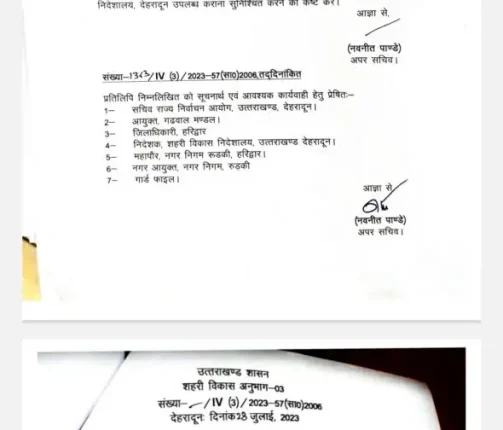 निदेशालय, देहरादून उपलब्ध कराना सुनिश्चित करने का कष्ट करें।
आज्ञा से,
(नवनीत पाण्डे)
अपर सचिव।
संख्या-1363/IV (3)/2023-57(सा0)2006,तद्दिनांकित
प्रतिलिपि निम्नलिखित को सूचनार्थ एवं आवश्यक कार्यवाही हेतु प्रेषितः-
1- सचिव राज्य निर्वाचन आयोग, उत्तराखण्ड, देहरादून।
2- आयुक्त, गढवाल मण्डल।
3- जिलाधिकारी, हरिद्वार
4- निदेशक, शहरी विकास निदेशालय, उत्तराखण्ड देहरादून।
5- महापौर, नगर निगम रूडकी, हरिद्वार।
6- नगर आयुक्त, नगर निगम, रुडकी
7- गार्ड फाइल।
आज्ञा से
(नवनीत पाण्डे)
अपर सचिव।
उत्तराखण्ड शासन
शहरी विकास अनुभाग-03
संख्या- /IV (3)/2023-57(सा0)2006
देहरादूनः दिनांक28 जुलाई, 2023